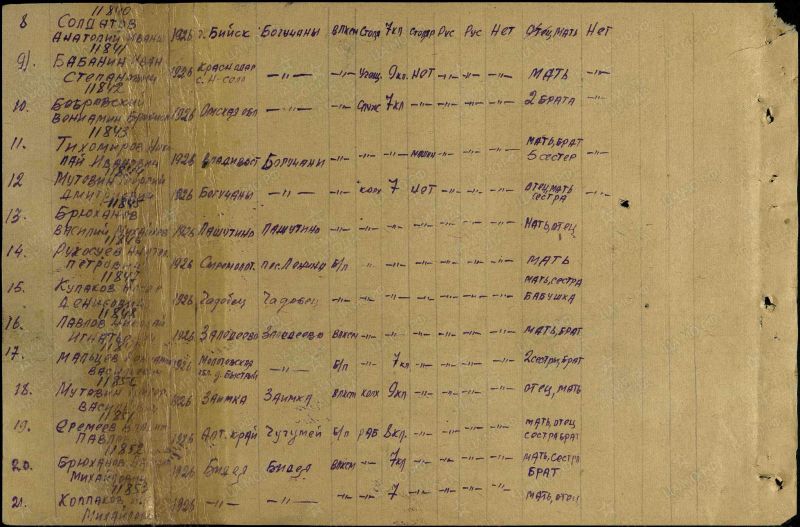 11840
8 Солдатов
Анатолий Иванов 1926 г. Бийск Богучаны ВЛКСМ Столя 7кл Столяр Рус Рус Нет Отец, мать Нет
11841
9) Бабанин Иван
Степанович 1926 Краснодар с. Н-село —"— —"— Учащ. 9кл. нет —"— —"— —"— мать —"—
11842
10. Бобровский
Вониамин 1926 Омская обл —"— —"— служ 7кл —"— —"— —"— —"— 2 брата —"—
11843
11. Тихомиров Нико
лай Иванович 1926 Владивост Богучаны —"— —"— —"— —"— —"— —"— мать, брат 5 сестер —"—
12 Мутовин
Дмитриевич 1926 Богучаны —"— —"— колх 7 нет —"— —"— —"— отец, мать сестра —"—
11845
13. Брюханов
Василий Михайлов 1926 Пашутино Пашутино —"— —"— —"— —"— —"— —"— —"— мать, отец
11846
14. Рукосуев
Петрович 1926 Сыромолот. пос. Ленино б/п " —"— —"— —"— —"— —"— мать
11847
15. Кулаков
Денисович 1926 Чадобец Чадобец —"— —"— —"— —"— —"— —"— —"— мать, сестра бабушка
11848
16. Павлов Николай
Игнатьевич 1926 Заледеево Заледеево ВЛКСМ —"— —"— —"— —"— —"— —"— мать, брат
17. Мальцев
Василевич 1926 Молотовская обл. д. Быстрая —"— б/п —"— 7кл —"— —"— —"— —"— 2 сестры, брат
18. Мутовин
Васил 1926 Заимка Заимка ВЛКСМ колх 9кл —"— —"— —"— —"— отец, мать
11851
19. Еремеев
Павлов 1926 Алт. край Чугумей б/п раб 8кл. —"— —"— —"— —"— мать, отец сестра брат
11852
20. Брюханов
Михайлович 1926 Бидея Бидея ВЛКСМ —"— 7кл —"— —"— —"— —"— мать, сестра брат
11853
21. Колпаков
Михайлов 1926 —"— —"— —"— —"— 7 —"— —"— —"— —"— мать, отец